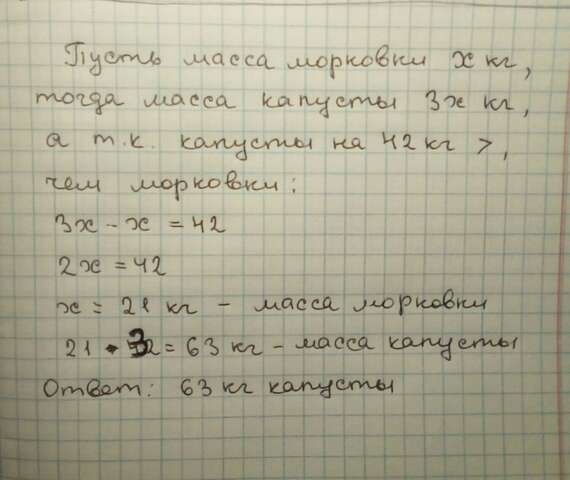 Пусть масса морковки x кг,
тогда масса капусты 3x кг,
а т.к. капусты на 42 кг >,
чем морковки:
3x - x = 42
2x = 42
x = 21 кг - масса морковки
21 · 3 = 63 кг - масса капусты
Ответ: 63 кг капусты